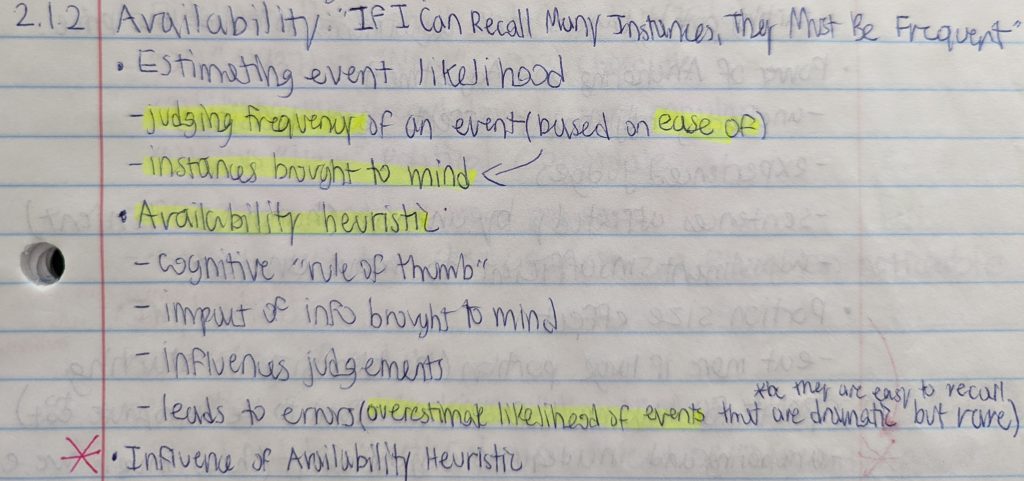 2.1.2 Availability: "If I Can Recall Many Instances, They Must Be Frequent"
• Estimating event likelihood
- judging frequency of an event (based on ease of)
- instances brought to mind
• Availability heuristic:
- cognitive "rule of thumb"
- impact of info brought to mind
- influences judgements
*bc they are easy to recall
- leads to errors (overestimate likelihood of events that are dramatic but rare)
• Influence of Availability Heuristic